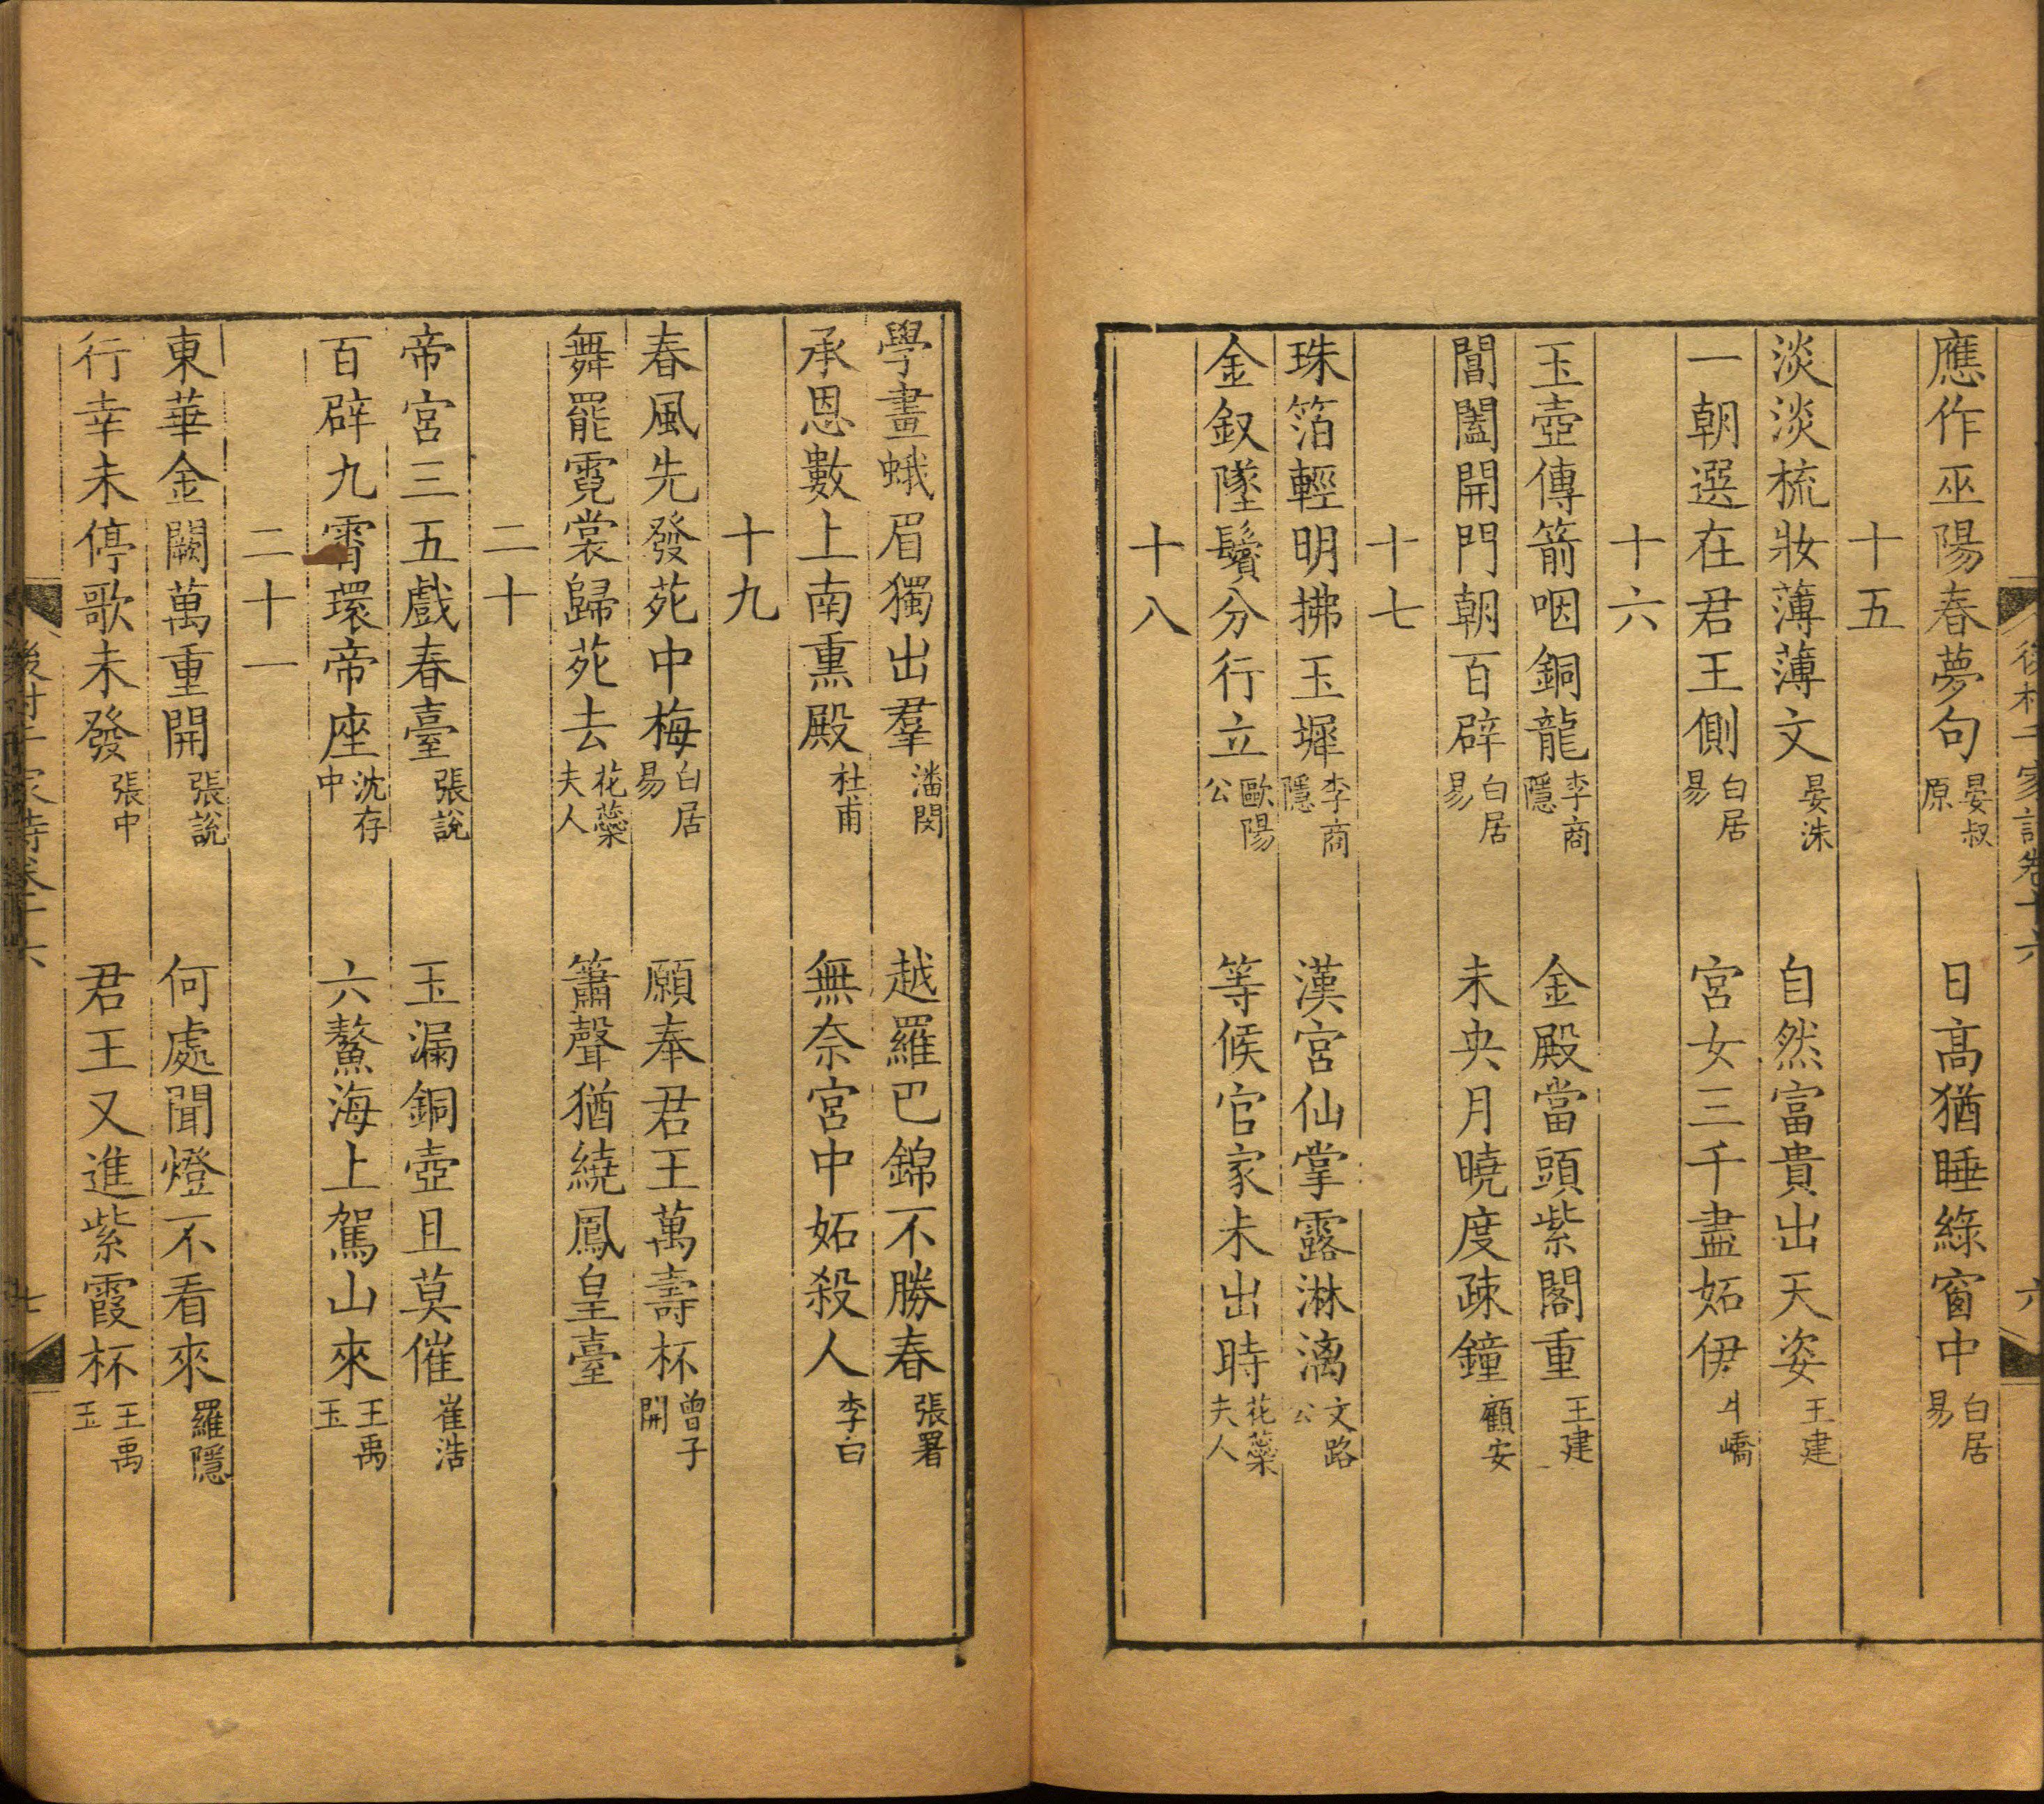 應作巫陽春夢句 晏叔原 日高猶睡綠窗中 白居易
十五
淡淡梳妝薄薄文 晏洙 自然富貴出天姿 王建
一朝選在君王側 白居易 宮女三千盡妬伊 嶠
十六
玉壺傳箭咽銅龍 李商隱 金殿當頭紫閣重 王建
閶闔開門朝百辟 白居易 未央月曉度疎鐘 顧安
十七
珠箔輕明拂玉墀 李商隱 漢宮仙掌露淋漓 文路公
金釵墜鬢分行立 歐陽公 等候官家未出時 花蘂夫人
十八
學畫蛾眉獨出羣 潘閬 越羅巴錦不勝春 張署
承恩數上南熏殿 杜甫 無奈宮中妬殺人 李白
十九
春風先發苑中梅 白居易 願奉君王萬壽杯 曾子開
舞罷霓裳歸苑去 花蘂夫人 簫聲猶繞鳳皇臺
二十
帝宮三五戲春臺 張說 玉漏銅壺且莫催 崔浩
百辟九霄環帝座 沈存中 六鰲海上駕山來 王禹玉
二十一
東華金闕萬重開 張說 何處聞燈不看來 羅隱
行幸未停歌未發 張中 君王又進紫霞杯 王禹玉